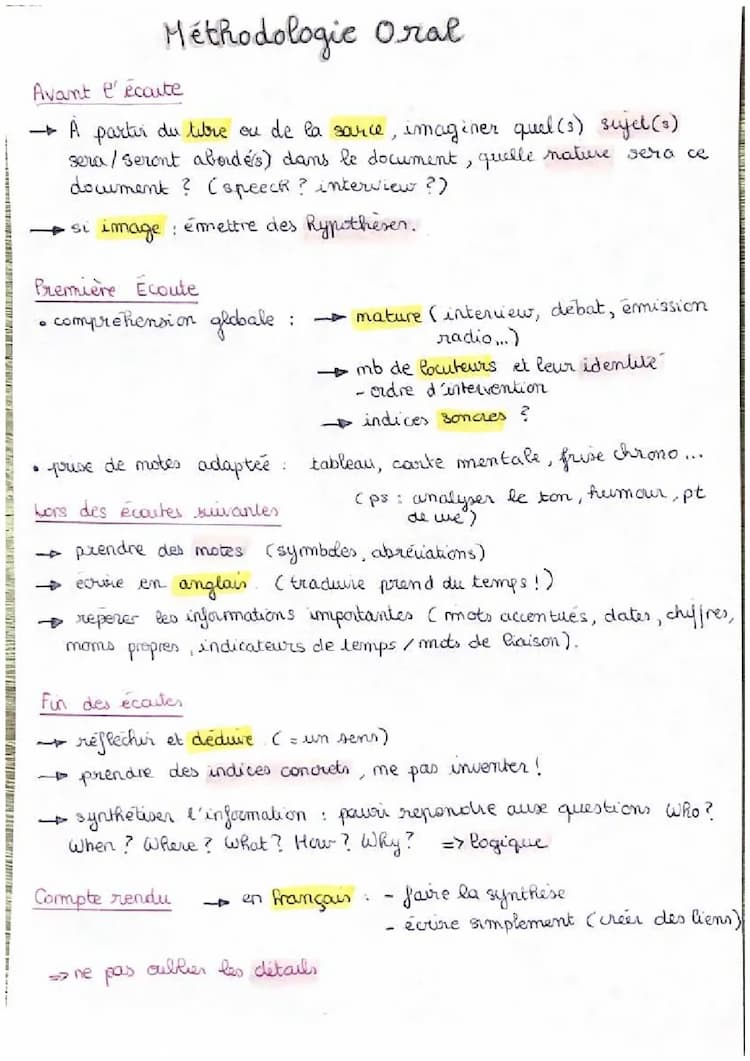 Méthodologie Oral
Avant l'écoute
→ À partir du titre ou de la source, imaginer quel(s) sujet(s)
sera/seront abordé(s) dans le document, quelle nature sera ce
document ? (speech ? interview ?)
→ si image : émettre des hypothèses.
Première Écoute
• compréhension globale : → nature (interview, débat, émission
radio...)
→ nb de locuteurs et leur identité
- ordre d'intervention
→ indices sonores ?
• prise de notes adaptée : tableau, carte mentale, frise chrono...
(ps : analyser le ton, humour, pt
de vue)
Lors des écoutes suivantes
→ prendre des notes (symboles, abréviations)
→ écrire en anglais (traduire prend du temps !)
→ repérer les informations importantes (mots accentués, dates, chiffres,
noms propres, indicateurs de temps / mots de liaison).
Fin des écoutes
→ réfléchir et déduire (= un sens)
→ prendre des indices concrets, ne pas inventer !
→ synthétiser l'information : pouvoir repondre aux questions Who ?
When ? Where ? What ? How ? Why ? => logique
Compte rendu → en français : - faire la synthèse
- écrire simplement (créer des liens)
=> ne pas oublier les détails